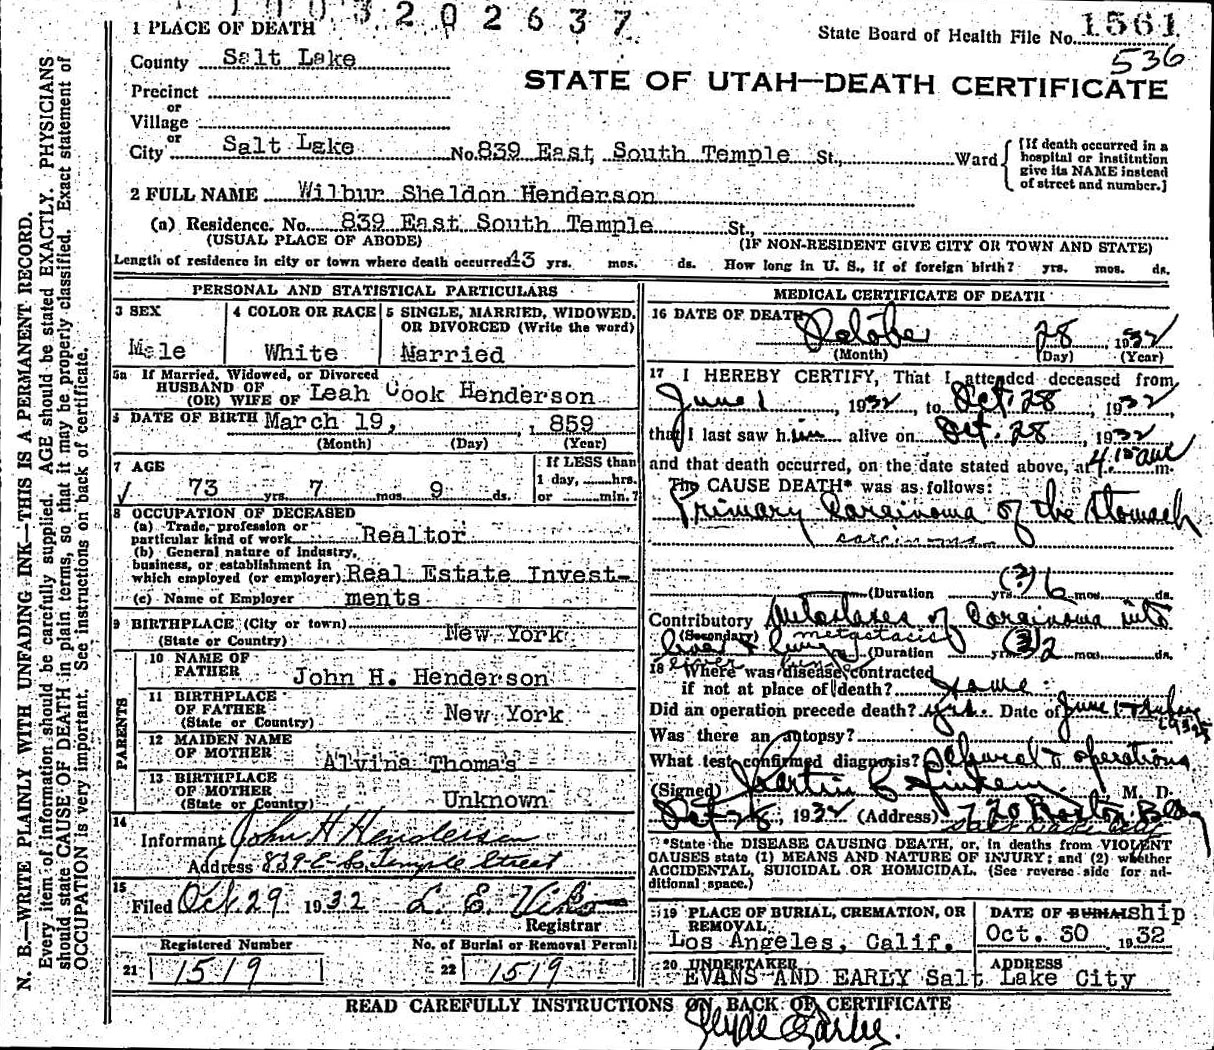 1003202637
1 PLACE OF DEATH
State Board of Health File No. 1561
536
County Salt Lake
STATE OF UTAH—DEATH CERTIFICATE
Precinct
or
Village
or
City Salt Lake No. 839 East South Temple St., Ward
[If death occurred in a
hospital or institution
give its NAME instead
of street and number.]
2 FULL NAME Wilbur Sheldon Henderson
(a) Residence. No. 839 East South Temple St.,
(USUAL PLACE OF ABODE) (IF NON-RESIDENT GIVE CITY OR TOWN AND STATE)
Length of residence in city or town where death occurred 43 yrs. mos. ds. How long in U. S., if of foreign birth? yrs. mos. ds.
PERSONAL AND STATISTICAL PARTICULARS
3 SEX
Male
4 COLOR OR RACE
White
5 SINGLE, MARRIED, WIDOWED,
OR DIVORCED (Write the word)
Married
5a If Married, Widowed, or Divorced
HUSBAND OF
(OR) WIFE OF Leah Cook Henderson
6 DATE OF BIRTH March 19, , 859
(Month) (Day) (Year)
7 AGE
73 yrs. 7 mos. 9 ds.
If LESS than
1 day, hrs.
or min.?
8 OCCUPATION OF DECEASED
(a) Trade, profession or
particular kind of work Realtor
(b) General nature of Industry,
business, or establishment in
which employed (or employer) Real Estate Invest-
(c) Name of Employer ments
9 BIRTHPLACE (City or town)
(State or Country) New York
PARENTS
10 NAME OF
FATHER John H. Henderson
11 BIRTHPLACE
OF FATHER New York
(State or Country)
12 MAIDEN NAME
OF MOTHER Alvina Thomas
13 BIRTHPLACE
OF MOTHER
(State or Country) Unknown
14
Informant John H Henderson
Address 839 E So Temple Street
15
Filed Oct. 29 1932 L. E. Viko
Registrar
Registered Number
21 1519
No. of Burial or Removal Permit
22 1519
MEDICAL CERTIFICATE OF DEATH
16 DATE OF DEATH October 28 , 1932
(Month) (Day) (Year)
17 I HEREBY CERTIFY, That I attended deceased from
June 1, 1932, to Oct. 28, 1932
that I last saw him alive on Oct. 28, 1932
and that death occurred, on the date stated above, at 4.15 am m.
The CAUSE DEATH* was as follows:
Primary Carcinoma of the Stomach
carcinoma
(Duration yrs. (3) 6 mos. ds.
Contributory Metastases of Carcinoma into
(Secondary) metastasis
liver & lungs (Duration yrs. (3) 2 mos. ds.
liver lungs
18 Where was disease contracted
if not at place of death? same
Did an operation precede death? yes. Date of June 1
1932
Was there an autopsy?
What test confirmed diagnosis? & operations
(Signed) Martin C , M. D.
Oct 28, 1932 (Address) 720 Boston Bldg
Salt Lake City
*State the DISEASE CAUSING DEATH, or, in deaths from VIOLENT
CAUSES state (1) MEANS AND NATURE OF INJURY; and (2) whether
ACCIDENTAL, SUICIDAL OR HOMICIDAL. (See reverse side for ad-
ditional space.)
19 PLACE OF BURIAL, CREMATION, OR
REMOVAL
Los Angeles, Calif.
DATE OF BURIAL ship
Oct. 30 , 1932
20 UNDERTAKER ADDRESS
EVANS AND EARLY Salt Lake City
READ CAREFULLY INSTRUCTIONS ON BACK OF CERTIFICATE
Clyde Early.
N. B.—WRITE PLAINLY WITH UNFADING INK—THIS IS A PERMANENT RECORD.
Every item of information should be carefully supplied. AGE should be stated EXACTLY. PHYSICIANS
should state CAUSE OF DEATH in plain terms, so that it may be properly classified. Exact statement of
OCCUPATION is very important. See instructions on back of certificate.